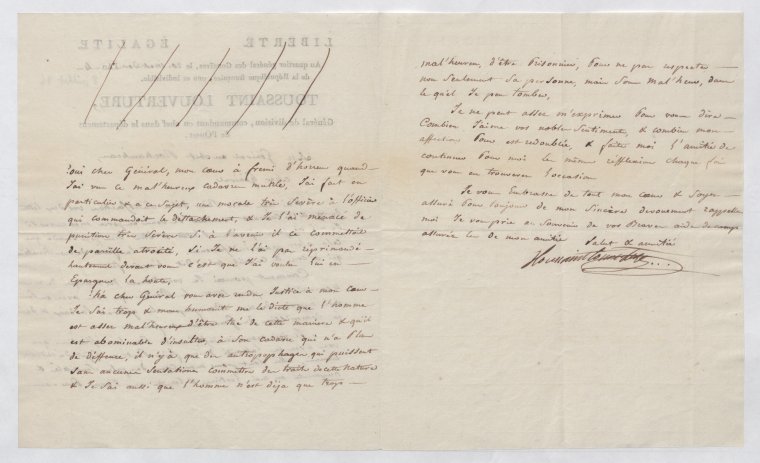 LIBERTÉ ÉGALITÉ
Au quartier général des Gonaïves, le
de la République française, une et indivisible.
TOUSSAINT LOUVERTURE,
Général de division, commandant en chef dans le département
de l'Ouest.
Oui cher Général, mon cœur à fremi d'horreur quand
J'ai vu ce mal'heureux cadavre mutilé, J'ai fait en
particulier & a ce Sujet, une mocale très Sevère à l'officier
qui commandoit le détachement, & Je l'ai menacé de
punition très Sevère Si à l'avenir il se committoit
de pareille atrosité, Si Je ne l'ai pas réprimandé
hautement devant vous c'est que J'ai voulu lui en
Epargner la honte,
ha cher Général vous avez rendu Justice à mon cœur
Je Sai trops & mon humanité me le dicte que l'homme
est assez mal'heureux d'être tué de cette maniere & qu'il
est abominable d'insulter à Son cadavre qui n'a Plus
de déffence, il n'y à que des antropophages qui puissent
Sans aucune Sensations Commettre des traits de cette Nature
& Je Sai aussi que l'homme n'est déja que trops
mal'heureux, d'être Prisonnier, Pour ne pas respecter
non Seulement Sa personne, mais Son mal'heur, dans
le quel Je peu tomber,
Je ne peut assez m'exprimer Pour vous dire
Combien J'aime vos nobles Sentiments, & combien mon
affection Pour vous est redoublée, & faites moi l'amitié de
continuer Pour moi les même réfflexion chaque fois
que vous en trouverez l'occasion
Je vous Embrasse de tout mon cœur & Soyez
assuré Pour toujours de mon Sincère devouement rappelez
moi Je vous prie au Souvenir de vos Braves aides de camps
assurés les de mon amitié Salut & amitié
Toussaint Louverture